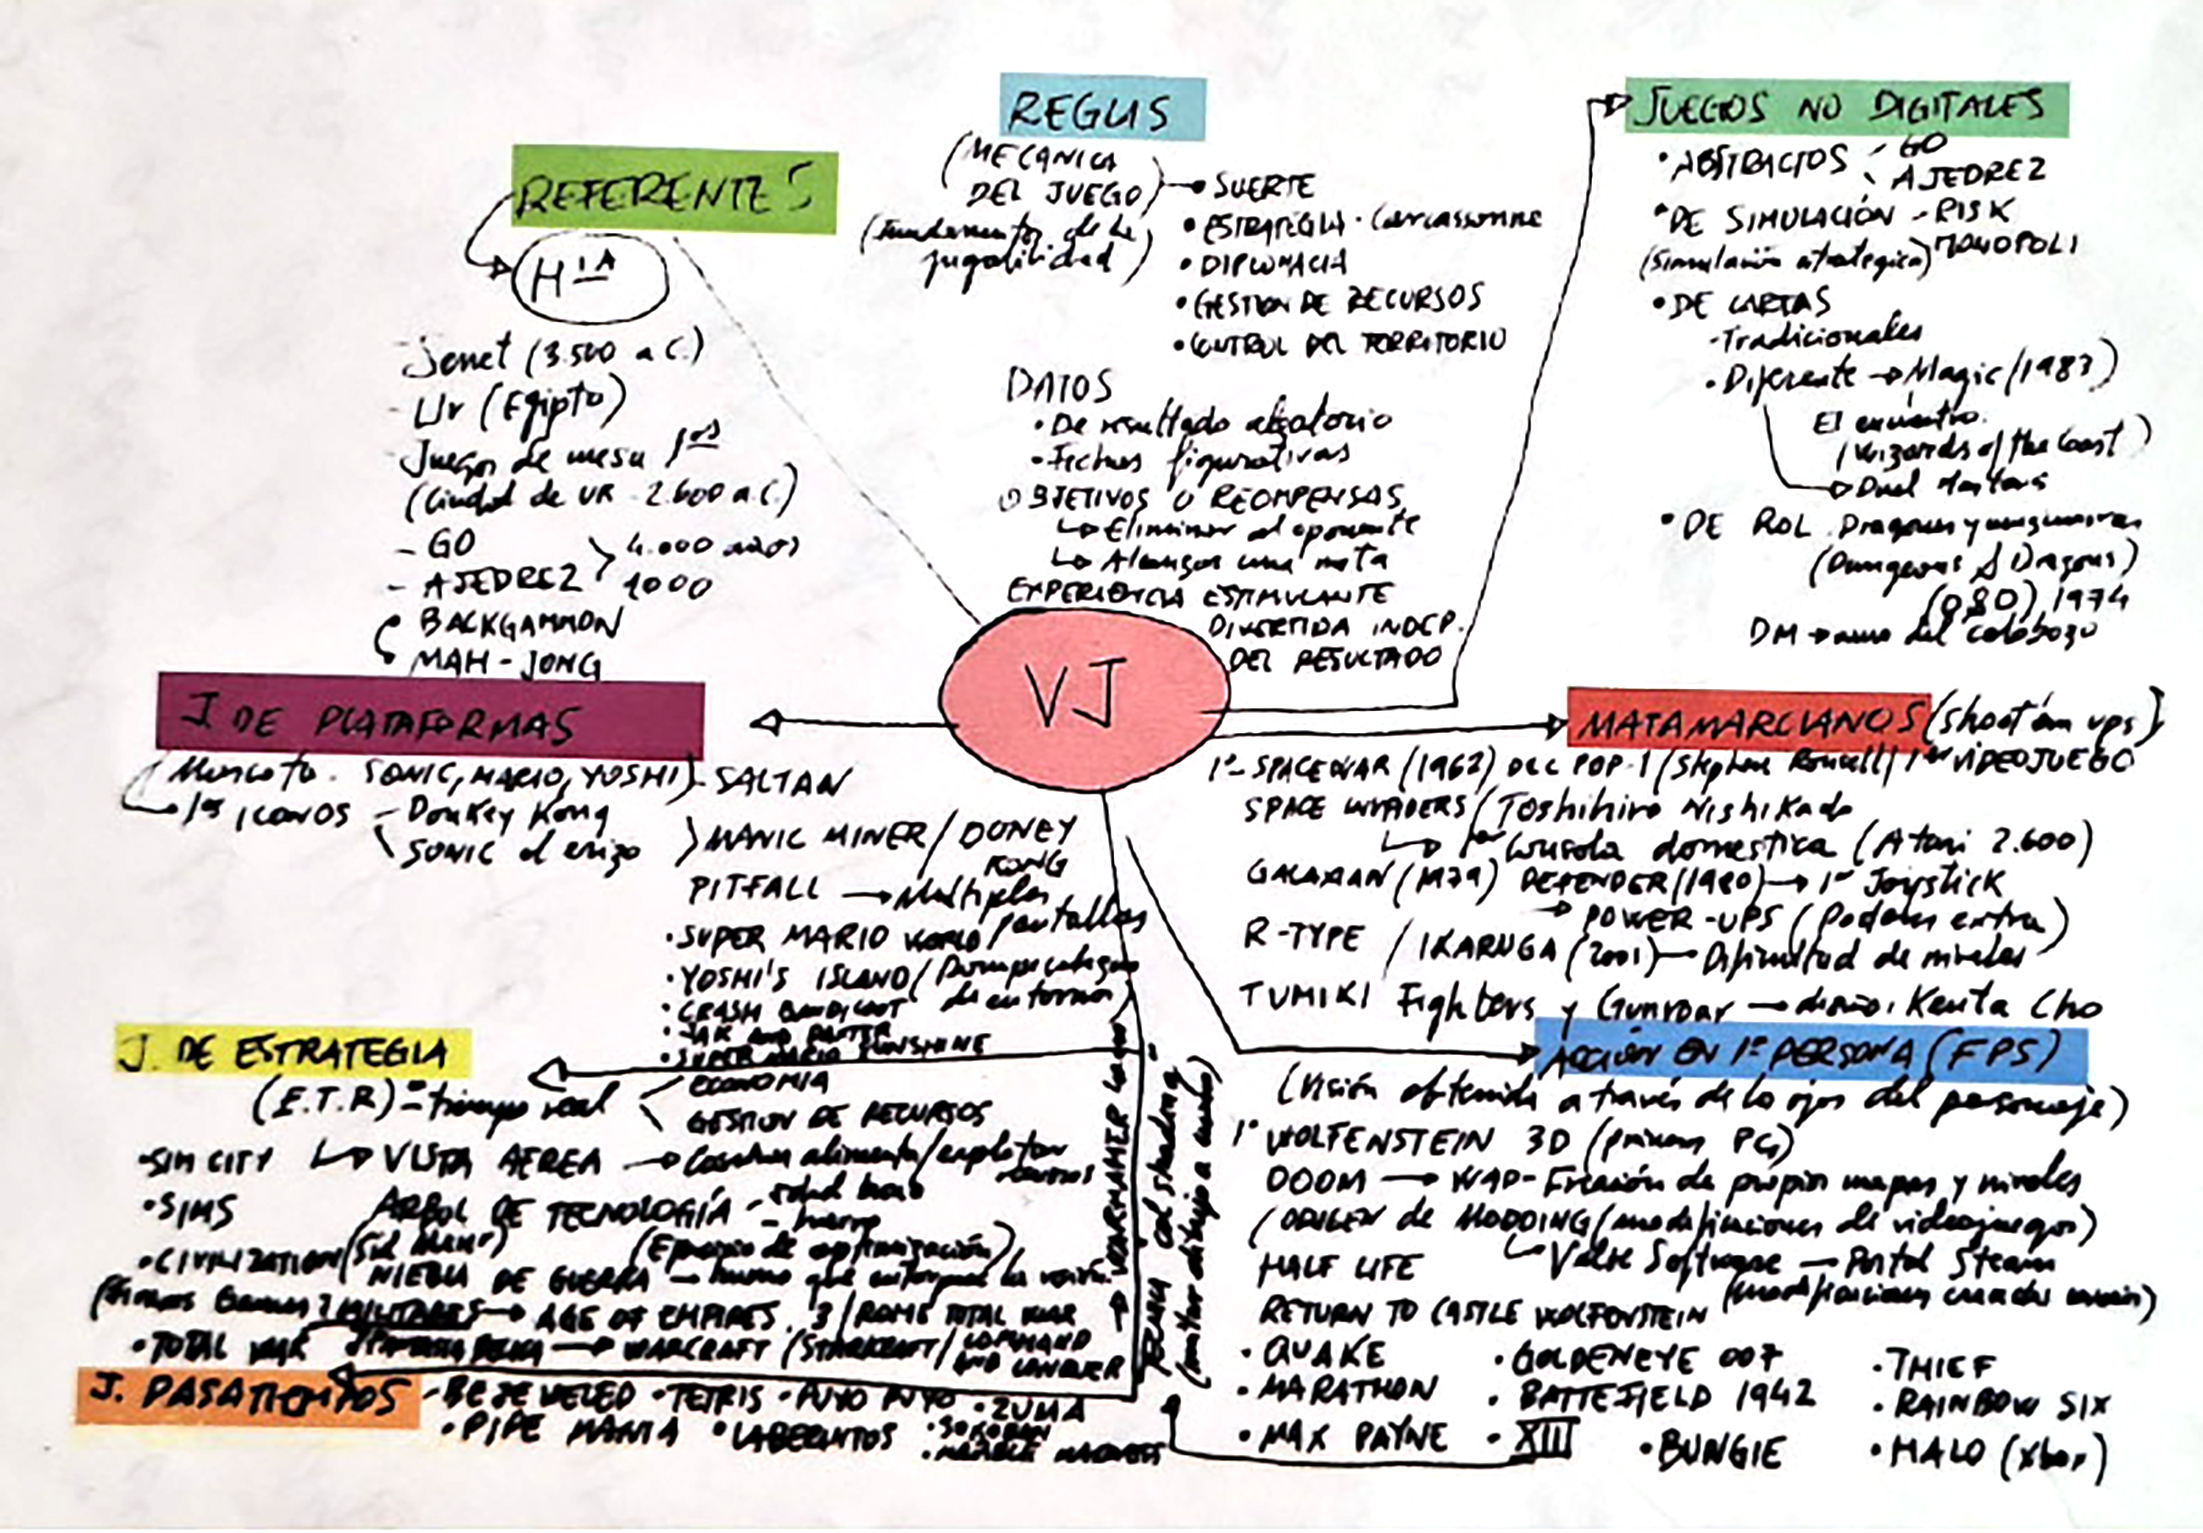 REFERENTES
Hia
- Senet (3.500 a C.)
- Ur (Egipto)
- Juegos de mesa 1os
(Ciudad de UR - 2.600 a.C.)
- GO 4.000 años
- AJEDREZ 1000
BACKGAMMON
MAH-JONG
REGLAS
(MECANICA
DEL JUEGO)
(Fundamentos de la
jugabilidad)
• SUERTE
• ESTRATEGIA - Carcassonne
• DIPLOMACIA
• GESTION DE RECURSOS
• CONTROL DEL TERRITORIO
DATOS
• De resultado aleatorio
• Fichas figurativas
OBJETIVOS O RECOMPENSAS
Eliminar al oponente
Alcanzar una meta
EXPERIENCIA ESTIMULANTE
DIVERTIDA INDEP.
DEL RESULTADO
JUEGOS NO DIGITALES
• ABSTRACTOS - GO
AJEDREZ
• DE SIMULACIÓN - RISK
(Simulación estrategica) MONOPOLI
• DE CARTAS
- Tradicionales
• Diferente → Magic (1983)
El encuentro.
(Wizards of the Coast)
Duel Masters
• DE ROL. Dragones y mazmorras
(Dungeons & Dragons)
(D&D) 1974
DM → amo del calabozo
VJ
J DE PLATAFORMAS
(Mascota. SONIC, MARIO, YOSHI) - SALTAN
1os ICONOS - Donkey Kong
SONIC el erizo
MANIC MINER / DONEY
KONG
PITFALL → Multiples
pantallas
• SUPER MARIO WORLD
• YOSHI'S ISLAND / Rompecabezas
de entornos
• CRASH BANDICOOT
• JAK AND DAXTER
• SUPER MARIO SUNSHINE
MATAMARCIANOS (shoot'em ups)
1º - SPACEWAR (1962) DEC PDP-1 (Stephen Russell) 1er VIDEOJUEGO
SPACE INVADERS / Toshihiro Nishikado
1er Consola domestica (Atari 2.600)
GALAXIAN (1979) DEFENDER (1980) → 1er Joystick
→ POWER-UPS (Poderes extra)
R-TYPE / IKARUGA (2001) - Dificultad de niveles
TUMIKI Fighters y Gunroar → diseño. Kenta Cho
J. DE ESTRATEGIA
(E.T.R) = tiempo real
ECONOMIA
GESTION DE RECURSOS
• SIM CITY VISTA AEREA → Cosechar alimento/explotar
recursos
• SIMS ARBOL DE TECNOLOGÍA - edad
- hierro
• CIVILIZATION (Sid Meier) (Ejercicio de optimización)
NIEBLA DE GUERRA → humo que entorpece la visión
(Firaxis Games) MILITARES → AGE OF EMPIRES. 3 / ROME TOTAL WAR
• TOTAL WAR → WARCRAFT / STARKRAFT / COMMAND
AND CONQUER
→ WARHAMMER
J. PASATIEMPOS - BEJEWELED • TETRIS • PUYO PUYO • ZUMA
• PIPE MANIA • LABERINTOS • SOKOBAN
• MARBLE MADNESS
ACCIÓN EN 1ª PERSONA (FPS)
(Visión obtenida a través de los ojos del personaje)
1º WOLFENSTEIN 3D (primeros PC)
DOOM → WAD - Creación de propios mapas y niveles
(ORIGEN de MODDING (modificaciones de videojuegos)
HALF LIFE Valve Software → Portal Steam
(modificaciones creadas)
RETURN TO CASTLE WOLFENSTEIN
• QUAKE • GOLDENEYE 007 • THIEF
• MARATHON • BATTEFIELD 1942 • RAINBOW SIX
• MAX PAYNE • XIII • BUNGIE • HALO (Xbox)
cel shading
(imitar dibujo a mano)